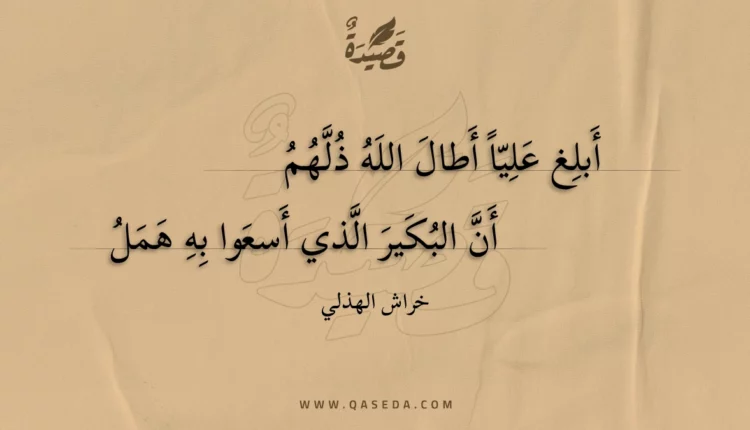 قَصِيْدَةٌ
أَبلِغ عَلِيّاً أَطالَ اللَهُ ذُلَّهُمُ
أَنَّ البُكَيرَ الَّذي أَسعَوا بِهِ هَمَلُ
خراش الهذلي
WWW.QASEDA.COM